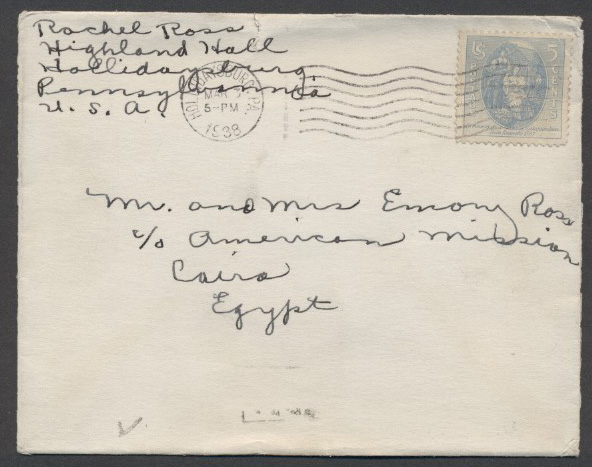 Rachel Ross
Highland Hall
Hollidaysburg,
Pennsylvania
U. S. A.
HOLLIDAYSBURG, PA.
MAR 7
5-PM
1938
US 5 CENTS
Mr. and Mrs Emory Ross
c/o American Mission
Cairo
Egypt